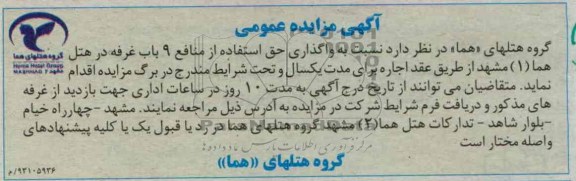 آگهی مزایده عمومی
گروه هتلهای «هما» در نظر دارد نسبت به واگذاری حق استفاده از منافع ۹ باب غرفه در هتل
هما (۱) مشهد از طریق عقد اجاره برای مدت یکسال و تحت شرایط مندرج در برگ مزایده اقدام
نماید. متقاضیان می توانند از تاریخ درج آگهی به مدت ۱۰ روز در ساعات اداری جهت بازدید از غرفه
های مذکور و دریافت فرم شرایط شرکت در مزایده به آدرس ذیل مراجعه نمایند. مشهد -چهارراه خیام
-بلوار شاهد - تدارکات هتل هما (۲) مشهد گروه هتلهای هما در رد یا قبول یک یا کلیه پیشنهادهای
واصله مختار است
گروه هتلهای «هما»
گروه هتلهای هما
Homa Hotel Group
۹۳۱۰۵۹۳۶/م